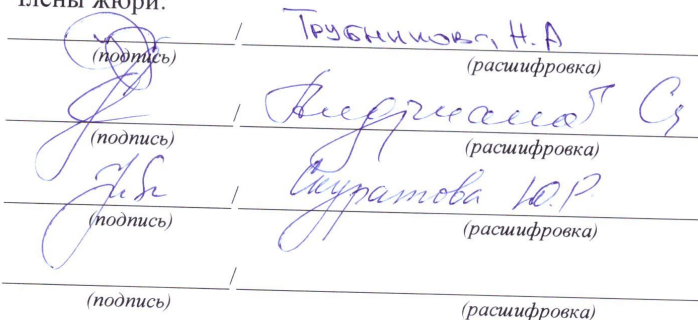 Члены жюри:
/ Трубникова Н.А
(подпись) (расшифровка)
/
(подпись) (расшифровка)
/ Скуратова Ю.Р.
(подпись) (расшифровка)
/
(подпись) (расшифровка)